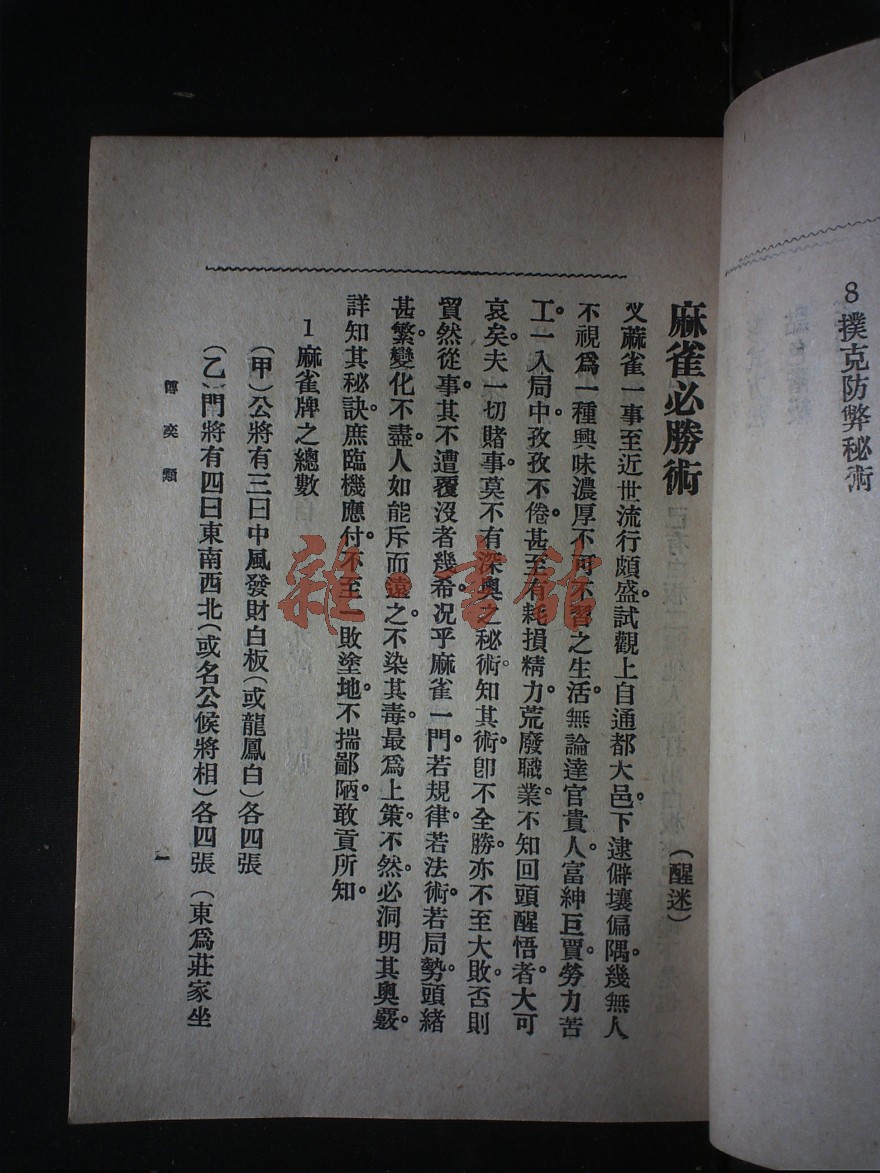 8 撲克防弊秘術
麻雀必勝術
(醒迷)
叉蔴雀一事至近世流行頗盛試觀上自通都大邑下逮僻壤偏隅。幾無人
不視爲一種興味濃厚不可不習之生活。無論達官貴人。富紳巨賈。勞力苦
工。一入局中。孜孜不倦。甚至有耗損精力。荒廢職業。不知回頭醒悟者。大可
哀矣。夫一切賭事。莫不有深奥之秘術。知其術。卽不全勝。亦不至大敗。否則
貿然從事。其不遭覆沒者幾希。况乎麻雀一門。若規律。若法術。若局勢。頭緒
甚繁。變化不盡。人如能斥而遠之。不染其毒。最爲上策。不然。必洞明其奥竅。
詳知其秘訣。庶臨機應付。不至一敗塗地。不揣鄙陋。敢貢所知。
1 麻雀牌之總數
(甲)公將有三曰中風發財白板(或龍鳳白)各四張
(乙)門將有四曰東南西北(或名公候將相)各四張(東爲莊家坐
博奕類
一
雜·書館